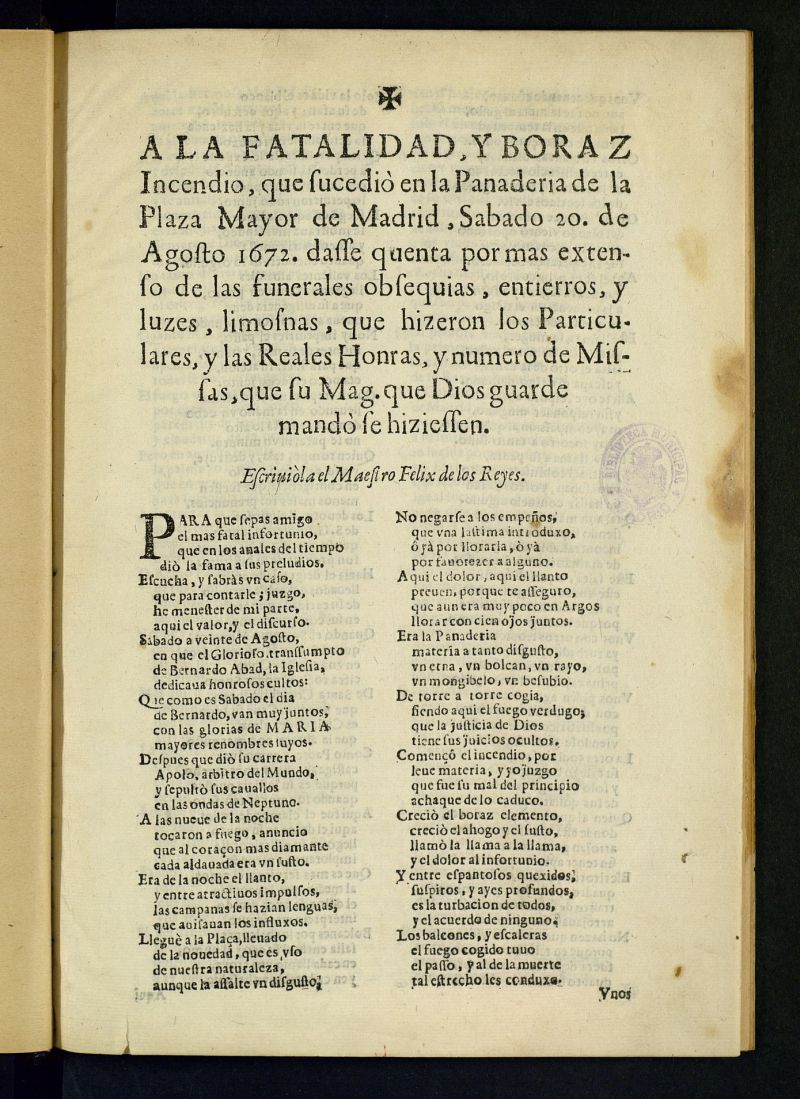 ✠
A LA FATALIDAD, Y BORAZ
Incendio, que ſucediò en la Panaderia de la
Plaza Mayor de Madrid, Sabado 20. de
Agoſto 1672. daſſe quenta por mas exten-
ſo de las funerales obſequias, entierros, y
luzes, limoſnas, que hizeron los Particu-
lares, y las Reales Honras, y numero de Miſ-
ſas, que ſu Mag. que Dios guarde
mandò ſe hizieſſen.
Eſcriuiòla el Maeſtro Felix de los Reyes.
PARA que ſepas amigo
el mas fatal infortunio,
que en los anales del tiempo
diò la fama a ſus preludios.
Eſcucha, y ſabràs vn caſo,
que para contarle; juzgo,
he meneſter de mi parte,
aqui el valor, y el diſcurſo.
Sabado a veinte de Agoſto,
en que el Glorioſo tranſſumpto
de Bernardo Abad, la Igleſia,
dedicaua honroſos cultos:
Que como es Sabado el dia
de Bernardo, van muy juntos,
con las glorias de MARIA
mayores renombres ſuyos.
Deſpues que diò ſu carrera
Apolo, arbitro del Mundo,
y ſepultò ſus cauallos
en las ondas de Neptuno.
A las nueue de la noche
tocaron a fuego, anuncio
que al coraçon mas diamante
cada aldauada era vn ſuſto.
Era de la noche el llanto,
y entre atractiuos impulſos,
las campanas ſe hazian lenguas,
que auiſauan los influxos.
Lleguè a la Plaça, lleuado
de la nouedad, que es vſo
de nueſtra naturaleza,
aunque la aſſalte vn diſguſto;
No negarſe a los empeños,
que vna laſtima introduxo,
ó yà por llorarla, ò yà
por fauorezer a alguno.
Aqui el dolor, aqui el llanto
preuen, porque te aſſeguro,
que aun era muy poco en Argos
llorar con cien ojos juntos.
Era la Panaderia
materia a tanto diſguſto,
vn etna, vn bolcan, vn rayo,
vn mongibelo, vn beſubio.
De torre a torre cogia,
ſiendo aqui el fuego verdugo;
que la juſticia de Dios
tiene ſus juicios ocultos.
Començó el incendio, por
leue materia, y yo juzgo
que fue ſu mal del principio
achaque de lo caduco.
Creciò el boraz elemento,
creciò el ahogo y el ſuſto,
llamò la llama a la llama,
y el dolor al infortunio.
Y entre eſpantoſos quexidos,
ſuſpiros, y ayes profundos,
es la turbacion de todos,
y el acuerdo de ninguno.
Los balcones, y eſcaleras
el fuego cogido tuuo
el paſſo, y al de la muerte
tal eſtrecho les conduxo.
Ynos
BIBLIOTECA MUNICIPAL